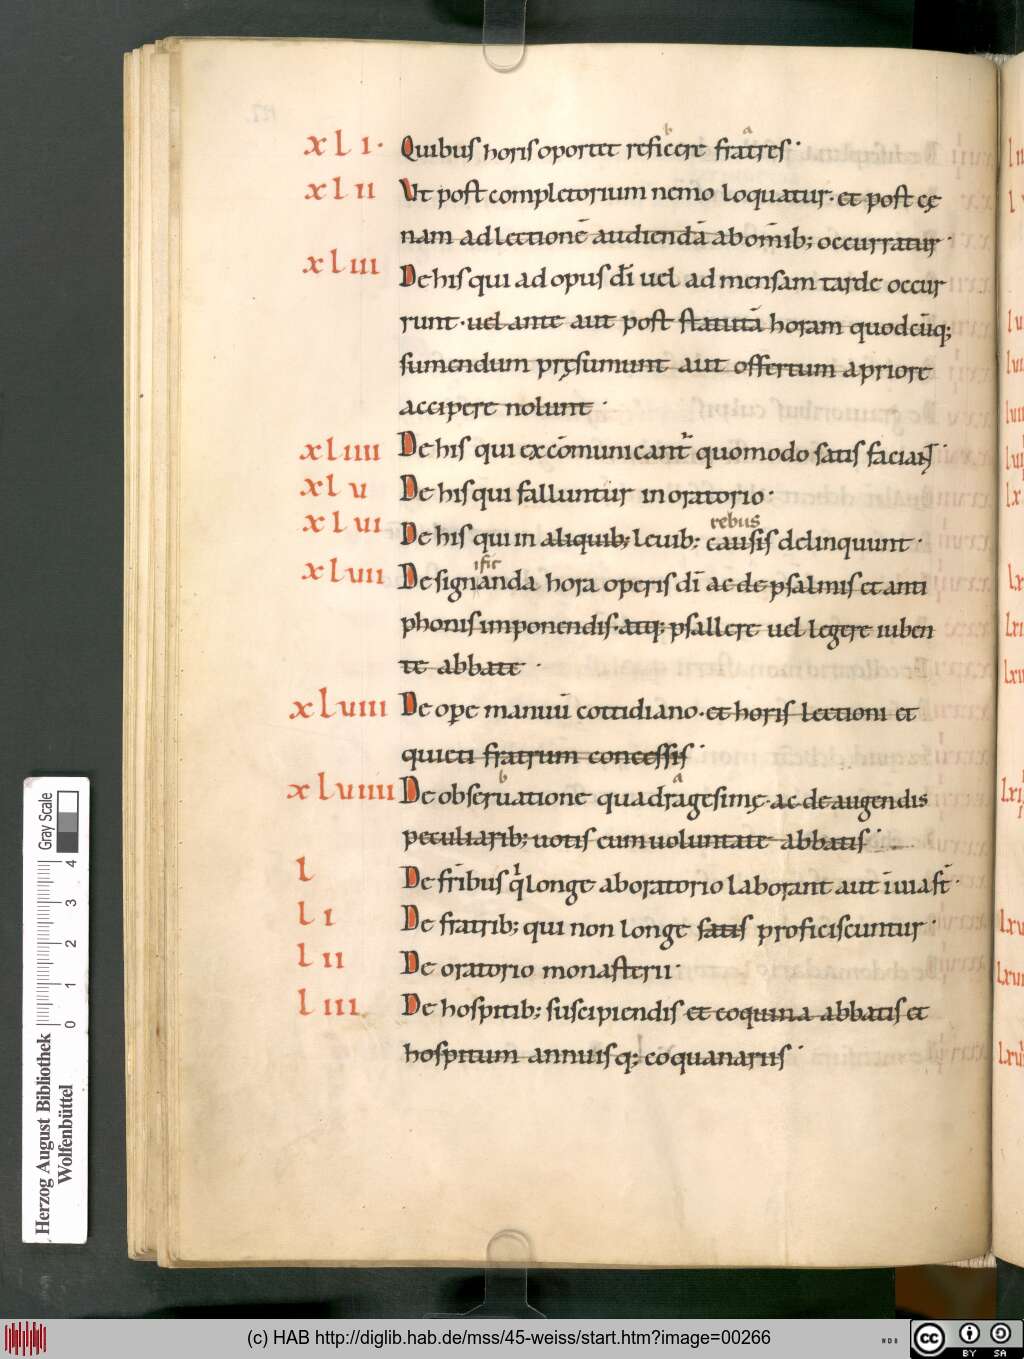 xLI· Quibus horis oportet reficere fratres·
xLII Ut post completorium nemo loquatur· et post cę
nam ad lectionē audiendā ab omīb; occurratur·
xLIII De his qui ad opus dī uel ad mensam tarde occur
runt· uel ante aut post statutā horam quodcūq;
sumendum pręsumunt aut offertum a priore
accipere nolunt·
xLIIII De his qui excōmunicant̄ quomodo satis faciant·
xLV De his qui falluntur in oratorio·
rebus
xLVI De his qui in aliquib; leuib; causis delinquunt·
ific
xLVII De signanda hora operis dī ac de psalmis et anti
phonis imponendis· atq; psallere uel legere iuben
te abbate·
xLVIII De ope manuū cottidiano· et horis lectioni et
quieti fratrum concessis·
b a
xLVIIII De obseruatione quadragesimę· ac de augendis
peculiarib; uotis cum uoluntate abbatis·
L De fr̄ibus q̄ longe ab oratorio laborant aut ī uia st̄·
LI De fratrib; qui non longe satis proficiscuntur·
LII De oratorio monasterii·
LIII De hospitib; suscipiendis et coquina abbatis et
hospitum annuisq; coquanariis·
Herzog August Bibliothek
Wolfenbüttel
0 1 2 3 4
Gray Scale
(c) HAB http://diglib.hab.de/mss/45-weiss/start.htm?image=00266
cc BY SA